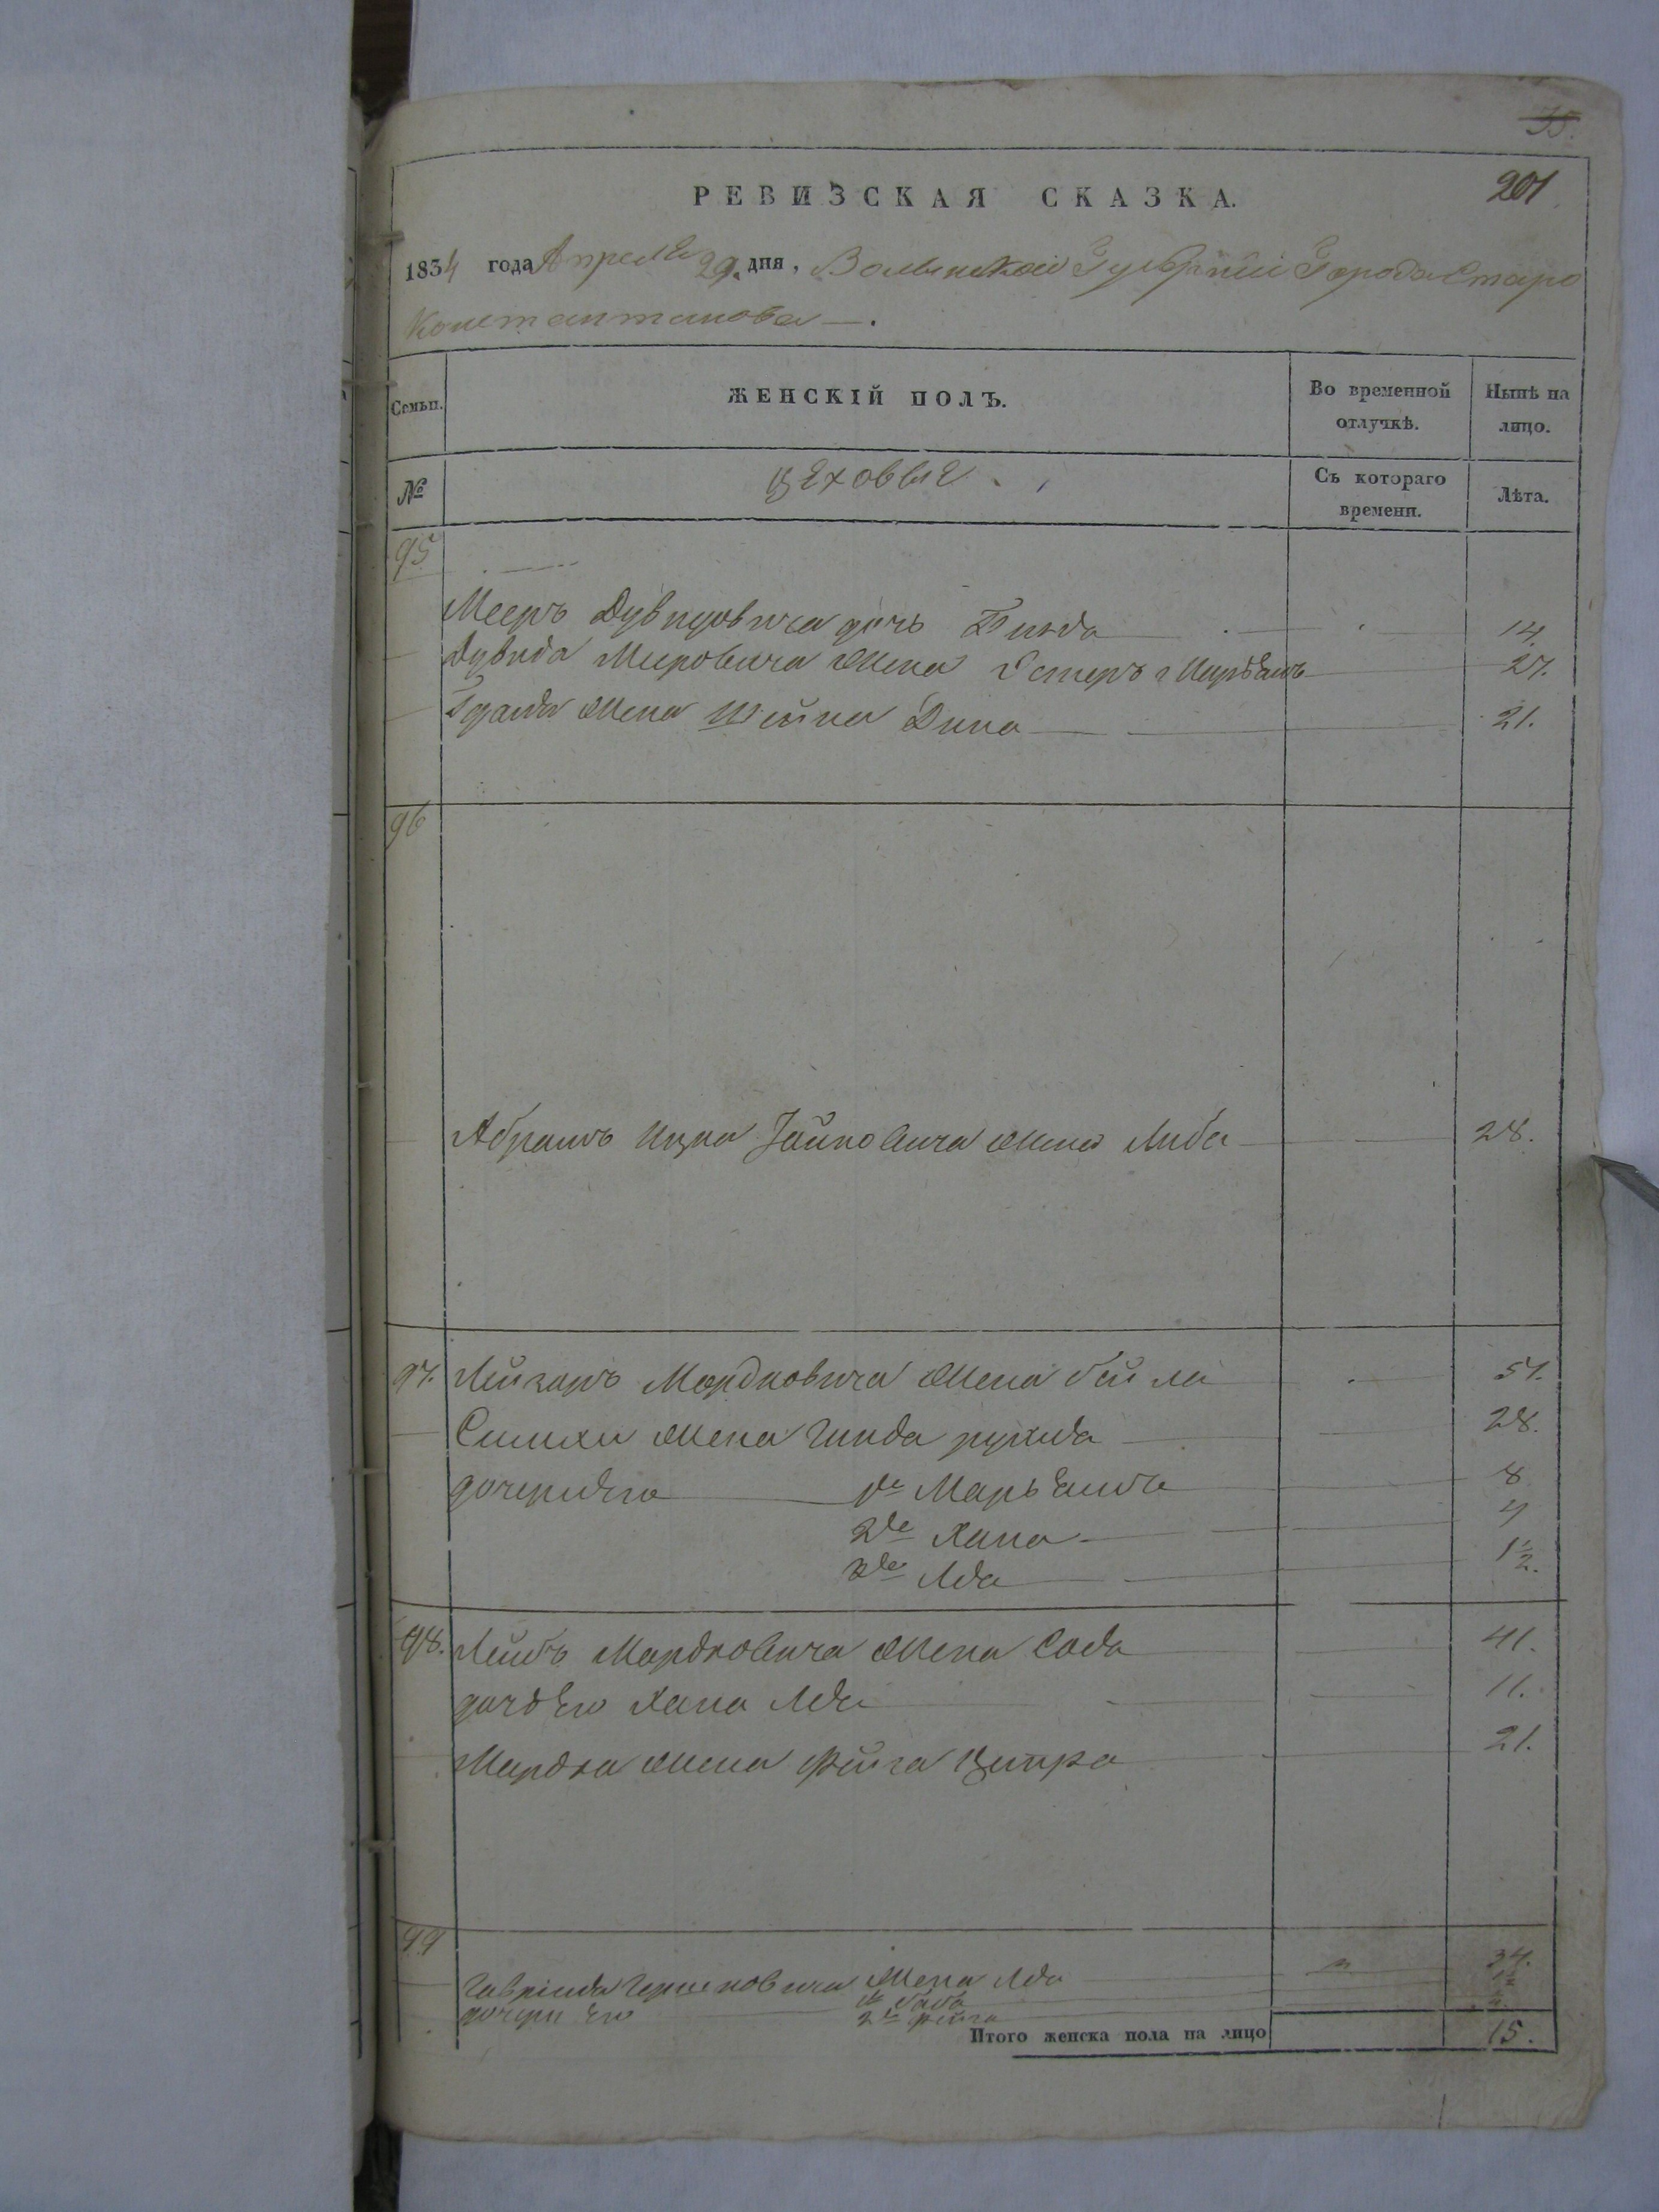 35.
201
РЕВИЗСКАЯ СКАЗКА.
1834 года Апреля 29. дня, Волынской Губернии Города Старо
Константинова —.
Семьи.
ЖЕНСКІЙ ПОЛЪ.
Во временной отлучкѣ.
Нынѣ на лицо.
№
цеховые
Съ котораго времени.
Лѣта.
95
Мееръ Дувидовича дочь 14.
Дувида Мировича жена Естеръ Марьямъ 27.
жена Шейна Дина 21.
96
Абрамъ Ицка жена Либа 28.
97. Лейзоръ Мордковича жена Бейла 57.
Симхи жена Гинда рухля 28.
дочери его 1я Марьямъ 8
2я Хана 4
3я Лея 1½.
98. Лейбъ Мордковича жена Сося 41.
дочь его Хана Лея 11.
Мордка жена Фейга Ципра 21.
99
Гавриила Гершковича жена Лея 34.
дочери его 1я
2я Фейга
Итого женска пола на лицо 15.